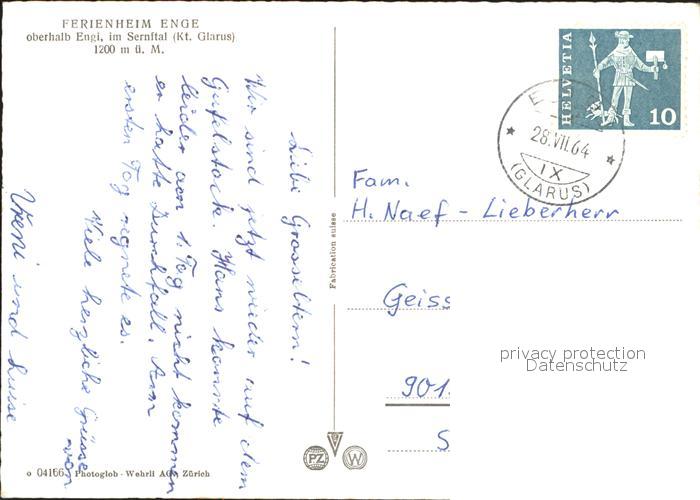 FERIENHEIM ENGE
oberhalb Engi, im Sernftal (Kt. Glarus)
1200 m ü. M.
Liebi Grosseltern!
Wir sind jetzt wieder auf dem
Gufelstock. Hans konnte
leider am 1. Tag nicht kommen
er hatte Durchfall. Am
ersten Tag regnete es.
Viele herzliche Grüsse von
Vreni und Luise
o 04166 Photoglob-Wehrli AG, Zürich
Fabrication suisse
PZ W
HELVETIA
10
28.VII.64
IX
(GLARUS)
Fam.
H. Naef - Lieberherr
Geiss
901
S
privacy protection
Datenschutz